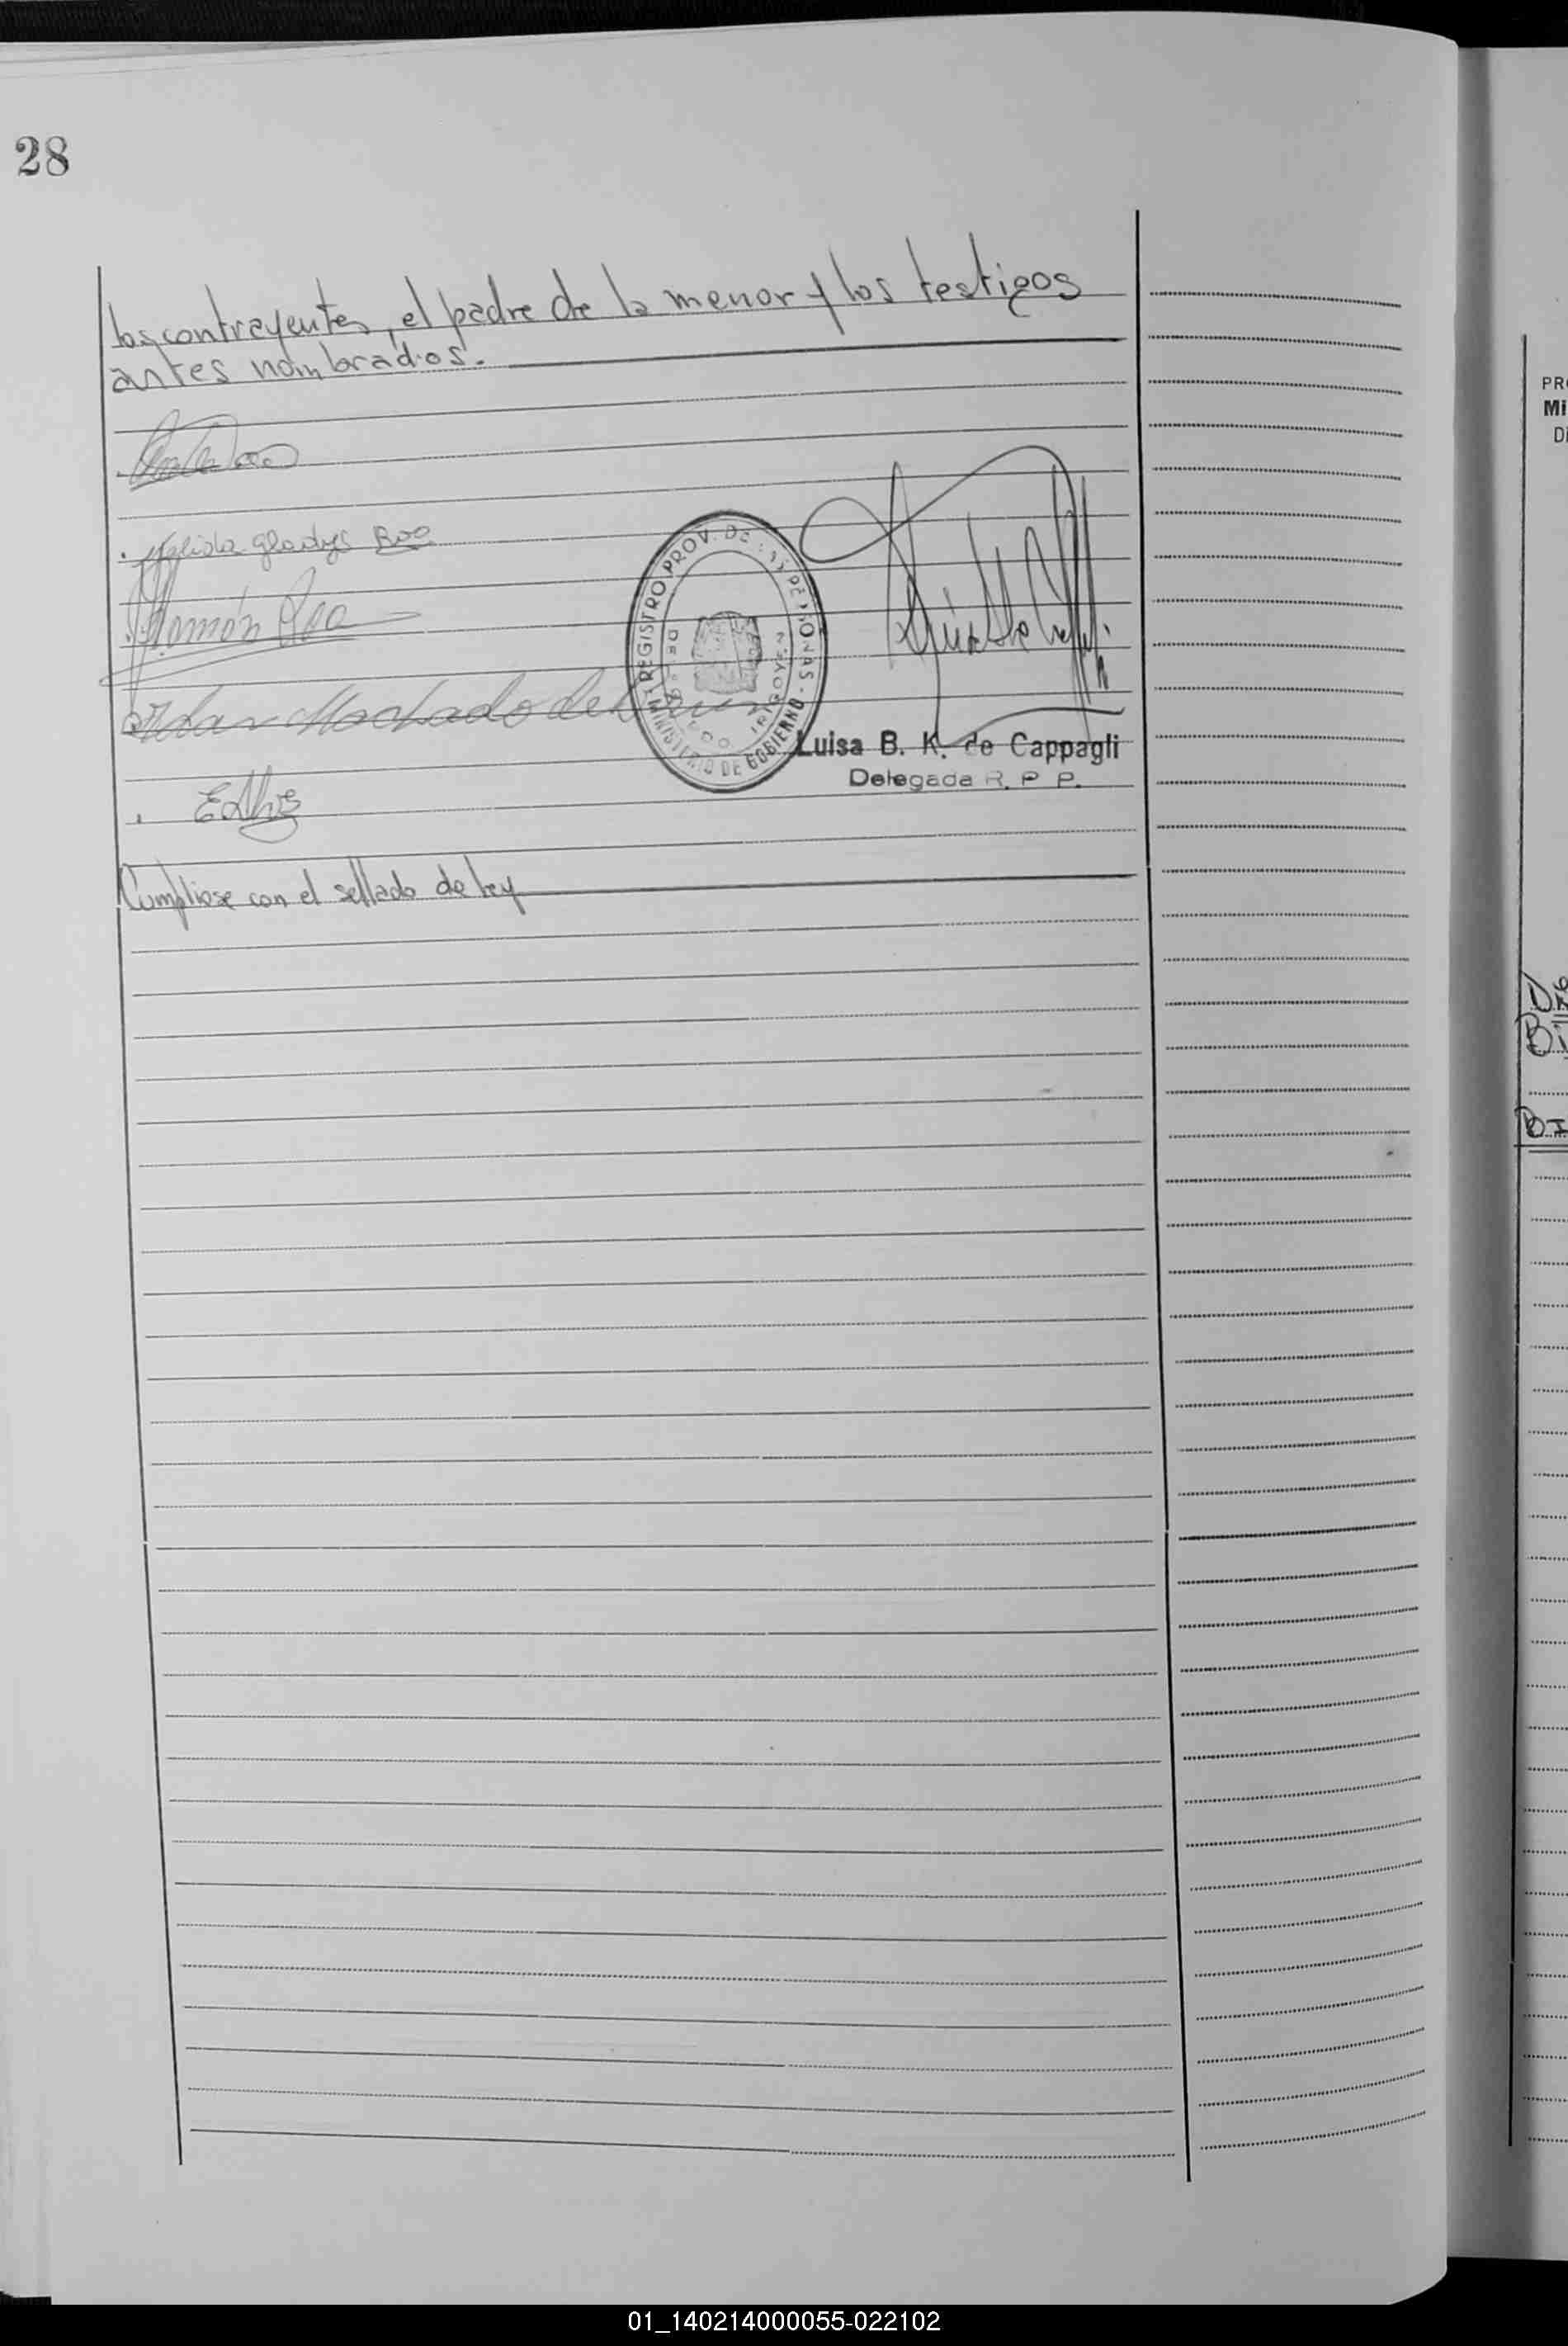 28
los contrayentes, el padre de la menor y los testigos
antes nombrados.
Gladys Roa
Ramón Roa
Machado de
REGISTRO PROV. DE LAS PERSONAS
MINISTERIO DE GOBIERNO
IRIGOYEN
Luisa B. K. de Cappagli
Delegada R. P. P.
Cumpliose con el sellado de ley
PR
Mi
Di
Bi
01_140214000055-022102